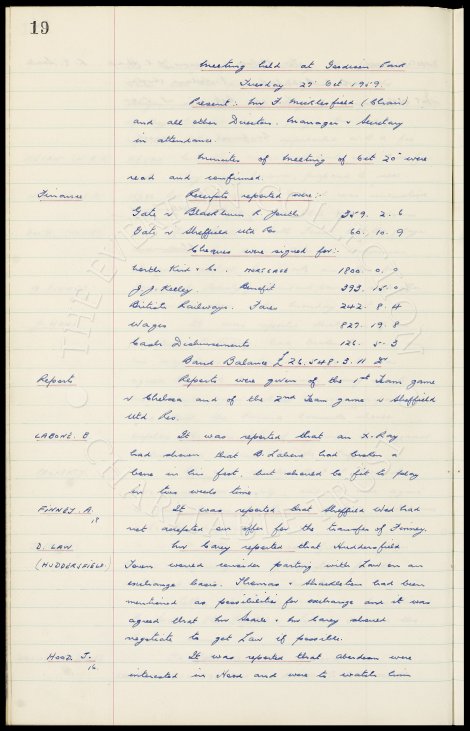 19
Meeting held at Goodison Park
Tuesday 27" Oct 1959.
Present: Mr F. Micklesfield (Chair)
and all other Directors. Manager & Secretary
in attendance.
Minutes of Meeting of Oct 20" were
read and confirmed.
Finance Receipts reported were:-
Gate v Blackburn R Youth 359. 2. 6
Gate v Sheffield Utd Res 60. 10. 9
Cheques were signed for:-
North. Kind & Co. MORTGAGE 1800. 0. 0
J. J. Keeley. Benefit 393. 15. 0
British Railways. Fares 242. 8. 4
Wages 827. 19. 8
Cash Disbursements 126. 5. 3
Bank Balance £26,548. 3. 11
Reports Reports were given of the 1st Team game
v Chelsea and of the 2nd Team game v Sheffield
Utd Res.
LABONE. B It was reported that an X-Ray
had shown that B. Labone had broken a
bone in his foot. but should be fit to play
in two weeks time
FINNEY. A. It was reported that Sheffield Wed had
18 not accepted our offer for the transfer of Finney.
D. LAW Mr Carey reported that Huddersfield
(HUDDERSFIELD) Town would consider parting with Law on an
exchange basis. Thomas & Shackleton had been
mentioned as possibilities for exchange and it was
agreed that Mr Searle & Mr Carey should
negotiate to get Law if possible.
HOOD J. It was reported that Aberdeen were
16. interested in Hood and were to watch him
THE EVERTON COLLECTION
CHARITABLE TRUST